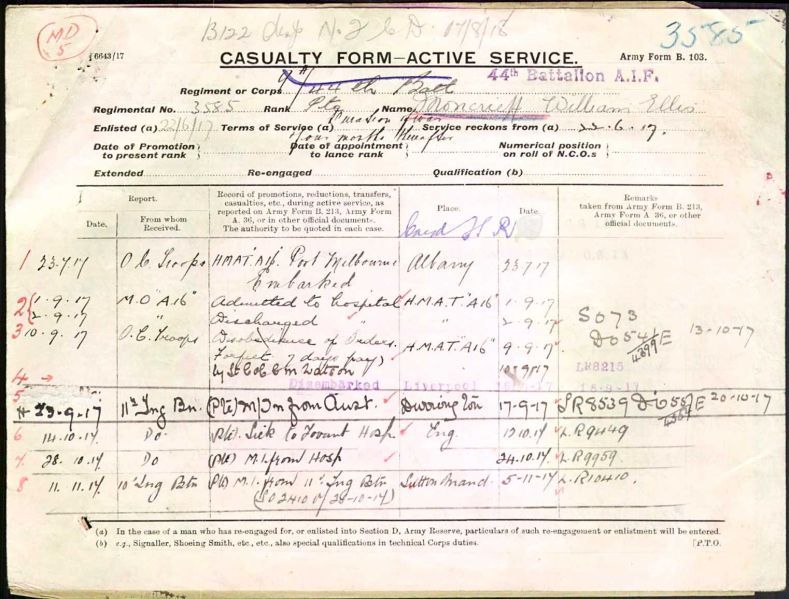 MD
5
B122
17/8/18
3585
6643/17
CASUALTY FORM—ACTIVE SERVICE.
Army Form B. 103.
44th Battalion A.I.F.
Regiment or Corps 44th Batt
Regimental No. 3585 Rank Pte Name Moncrieff William Ellis
Duration of war
Enlisted (a) 22/6/17 Terms of Service (a) Service reckons from (a) 22.6.17.
four months thereafter
Date of Promotion to present rank
Date of appointment to lance rank
Numerical position on roll of N.C.O.s
Extended Re-engaged Qualification (b)
Report.
Date.
From whom Received.
Record of promotions, reductions, transfers, casualties, etc., during active service, as reported on Army Form B. 213, Army Form A. 36, or in other official documents. The authority to be quoted in each case.
Place.
Date.
Remarks taken from Army Form B. 213, Army Form A. 36, or other official documents.
1 23.7.17 O C Troops HMAT "A16" Port Melbourne Albany 23 7 17
Embarked
2 1-9-17 M.O "A16" Admitted to hospital H.M.A.T "A16" 1-9-17
2-9-17 Discharged " 2-9-17 S073
3 10-9-17 O.C. Troops Disobedience of Orders. H.M.A.T. "A16" 9-9-17 13-10-17
Forfeit 7 days pay
by Lt Col C M Watson 10 9 17 LR8215
4 Disembarked Liverpool
5 23-9-17 11th Tng Bn. (Pte) M/In from Aust. Durrington 17-9-17 LR8539 20-10-17
6 14.10.17 Do (Pte) Sick to Fovant Hosp Eng. 12 10 17 L.R9449
7 28.10.17 Do (Pte) M.I. from Hosp 24.10.17 L.R9959.
8 11.11.17 10th Tng Btn (Pte) M.I. from 11th Tng Btn Sutton Mand. 5-11-17 L.R10410.
(a) In the case of a man who has re-engaged for, or enlisted into Section D, Army Reserve, particulars of such re-engagement or enlistment will be entered.
(b) e.g., Signaller, Shoeing Smith, etc., etc., also special qualifications in technical Corps duties.
[P.T.O.